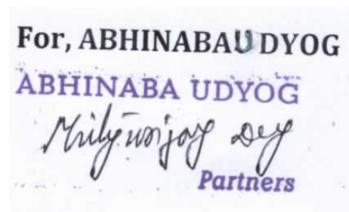 For, ABHINABAUDYOG
ABHINABA UDYOG
Mrityunjoy Dey
Partners